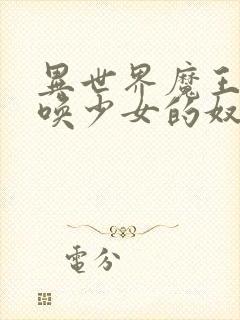 異世界魔王
喚少女的奴
電分